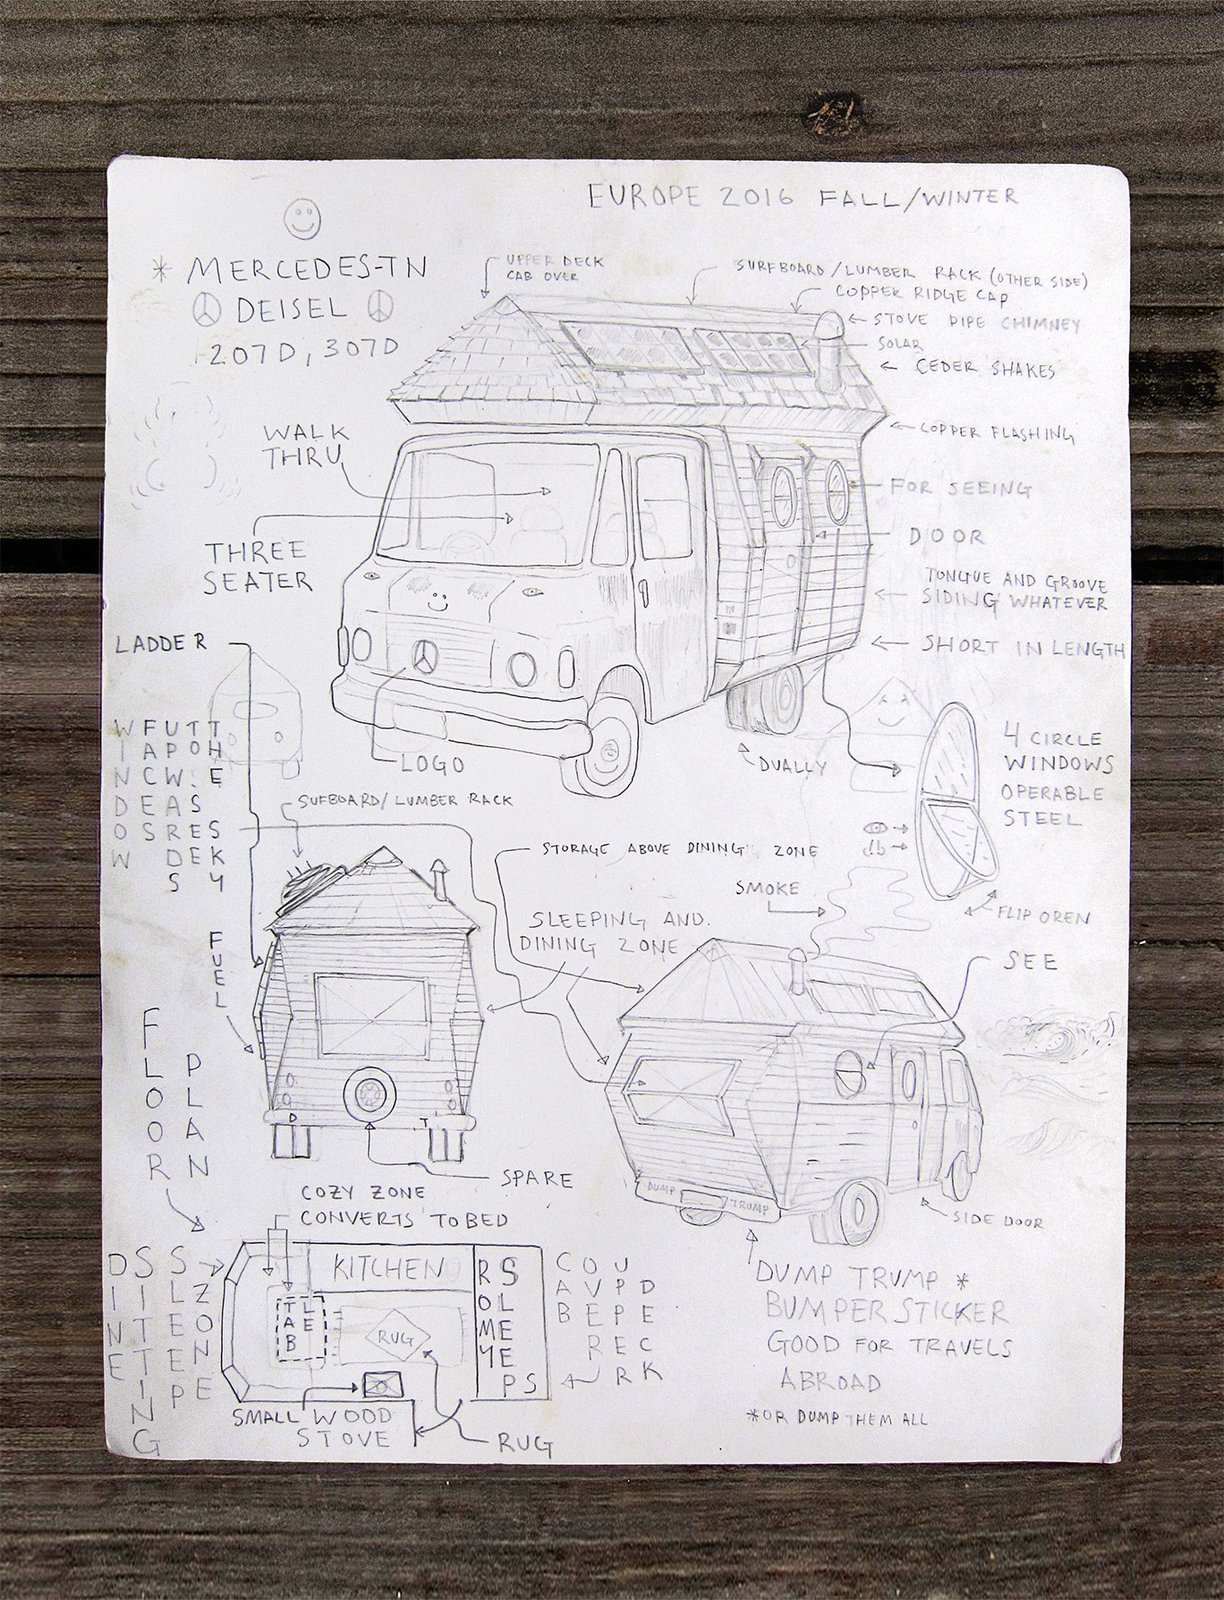 EUROPE 2016 FALL/WINTER
* MERCEDES-TN
DEISEL
207D, 307D
UPPER DECK
CAB OVER
SURFBOARD/LUMBER RACK (OTHER SIDE)
COPPER RIDGE CAP
STOVE PIPE CHIMNEY
SOLAR
CEDER SHAKES
COPPER FLASHING
WALK
THRU
FOR SEEING
DOOR
THREE
SEATER
TONGUE AND GROOVE
SIDING WHATEVER
SHORT IN LENGTH
LADDER
WINDOW
FACES
UPWARDS
TO SEE
THE SKY
LOGO
DUALLY
4 CIRCLE
WINDOWS
OPERABLE
STEEL
FLIP OPEN
SUFBOARD/LUMBER RACK
STORAGE ABOVE DINING ZONE
SMOKE
SLEEPING AND
DINING ZONE
SEE
FUEL
FLOOR
PLAN
SPARE
DUMP TRUMP
SIDE DOOR
COZY ZONE
CONVERTS TO BED
DINE
SITTING
SLEEP
ZONE
KITCHEN
TABLE
RUG
ROMY
SLEEPS
CAB
OVER
UPPER
DECK
SMALL WOOD
STOVE
RUG
DUMP TRUMP *
BUMPER STICKER
GOOD FOR TRAVELS
ABROAD
*OR DUMP THEM ALL